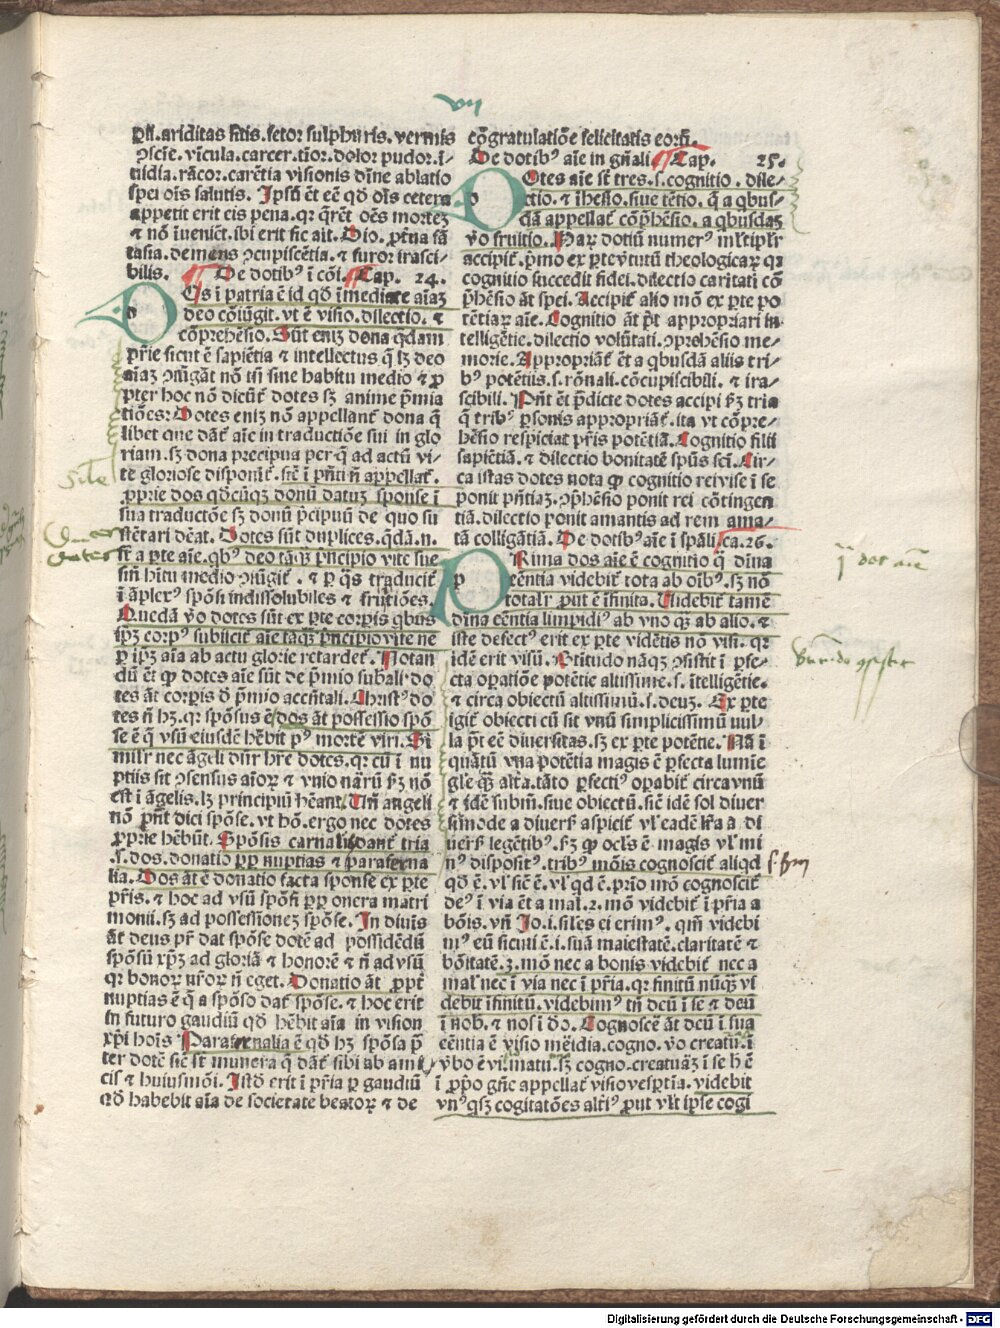 vııı
pñ. ariditas sitis. fetor sulphuris. vermis
ꝯscīe. vīcula. carcer. tīor. dolor pudor. ī-
uidia. rācor. carētia visionis dīne ablatio
spei oīs salutis. Ipsū ēt eē qd̄ oīs cetera
appetit erit eis pena. qr q̄rēt oēs mortez
⁊ nō īueniēt. sibi erit sic ait. Dio. pr̄na fā
tasia. demens ꝯcupiscētia. ⁊ furor irasci-
bilis. De dotibꝰ ī cōi. Cap. 24.
DOs ī patria ē id qd̄ īmediate aīaz
deo cōiūgit. vt ē visio. dilectio. ⁊
cōprehēsio. Sūt eniz dona q̄dam
pr̄ie sicut ē sapiētia ⁊ intellectus q̄ lꝫ deo
aīaz ꝯiūgāt nō tn̄ sine habitu medio ⁊ ꝓ
pter hoc nō dicūt̄ dotes sꝫ anime p̄mia
tiōes: Dotes eniz nō appellant̄ dona q̄
libet que dāt̄ aīe in traductiōe sui in glo
riam. sꝫ dona precipua per q̄ ad actū vi-
te gloriose disponit̄. sic̄ ī pn̄ti n̄ appellat̄.
ꝓprie dos qd̄cūqꝫ donū datuz sponse ī
sua traductōe sꝫ donū p̄cipuū de quo su
stētari deāt. Dotes sūt duplices. q̄dā. n.
sūt a pte aīe. qbꝰ deo tāqꝫ p̄ncipio vite sue
sin̄ hītu medio ꝯiūgit̄. ⁊ p q̄s traducit̄
ī āplexꝰ spōsi indissolubiles ⁊ fruitiōes.
Quedā v̄o dotes sūt ex pte corpis qbus
ip̄ꝫ corpꝰ subiicit̄ aīe tāqꝫ p̄ncipio vite ne
p ip̄ꝫ aīa ab actu glorie retardet̄. Notan
dū ēt ꝙ dotes aīe sūt de p̄mio subāli. do
tes āt corpis d̄ p̄mio accn̄tali. Christꝰ do
tes n̄ hꝫ. qr spōsus ē dos āt possessio spō
se ē q̄ vsū eiusdē hēbit pꝰ mortē viri. Si
milr̄ nec āgeli dn̄r hr̄e dotes. qr cū ī nu
ptiis sit ꝯsensus aīoꝝ ⁊ vnio nāꝝ sꝫ nō
est ī āgelis. lꝫ principiū hēant. Un̄ angeli
nō pn̄t dici spōse. vt hō. ergo nec dotes
ꝓprie hēbūt. Spōsis carnalibꝰ dant̄ tria
.s. dos. donatio ꝓp nuptias ⁊ paraferna
lia. Dos āt ē donatio facta sponse ex pte
pr̄is. ⁊ hoc ad vsū spōsi ꝓp onera matri
monii. sꝫ ad possessionez spōse. In diuīs
āt deus pr̄ dat spōse dotē ad possidēdū
spōsū xp̄ꝫ ad gloriā ⁊ honorē ⁊ n̄ ad vsū
qr bonoꝝ nr̄oꝝ n̄ eget. Donatio āt ꝓpt̄
nuptias ē q̄ a spōso dat̄ spōse. ⁊ hoc erit
in futuro gaudiū qd̄ hēbit aīa in vision
xp̄i hoīs Parafernalia ē qd̄ hꝫ spōsa p̄
ter dotē sic̄ sūt munera q̄ dāt̄ sibi ab ami
cis ⁊ huiusmōi. Istd̄ erit ī pr̄ia p gaudiū
qd̄ habebit aīa de societate beatoꝝ ⁊ de
cōgratulatiōe felicitatis eoꝝ.
De dotibꝰ aīe in gn̄ali Cap. 25.
DOtes aīe sūt tres. s. cognitio. dile-
ctio. ⁊ īhesio. siue tētio. q̄ a qbus-
dā appellat̄ cōp̄hēsio. a qbusdaz
v̄o fruitio. Haꝝ dotiū numerꝰ mltiplr̄
accipit̄. p̄mo ex pte vtutū theologicaꝝ qr
cognitio succedit fidei. dilectio caritati cō
p̄hēsio āt spei. Accipit̄ alio mō ex pte po
tētiaꝝ aīe. Cognitio āt pt̄ appropriari in
telligētie. dilectio volūtati. ꝯprehēsio me-
morie. Appropriāt̄ ēt a qbusdā aliis tri-
bꝰ potētiis. s. rōnali. cōcupiscibili. ⁊ ira-
scibili. Pn̄t ēt p̄dicte dotes accipi sꝫ tria
q̄ tribꝰ psonis appropriāt̄. ita vt cōpre-
hēsio respiciat pr̄is potētiā. Cognitio filii
sapiētiā. ⁊ dilectio bonitatē spūs sc̄i. Cir-
ca istas dotes nota ꝙ cognitio rei vise ī se
ponit pn̄tiaꝫ. ꝯp̄hēsio ponit rei cōtingen
tiā. dilectio ponit amantis ad rem ama-
tā colligātiā. De dotibꝰ aīe ī spāli ca. 26.
PRima dos aīe ē cognitio q̄ dīna
eēntia videbit̄ tota ab oībꝰ. sꝫ nō
totalr̄ put ē īfinita. Uidebit̄ tamē
dīna eēntia limpidiꝰ ab vno qꝫ ab alio. ⁊
iste defectꝰ erit ex pte vidētis nō visi. qr
idē erit visū. Btitudo nāqꝫ ꝯsistit ī pfe-
cta opatiōe potētie altissime. s. ītelligētie.
⁊ circa obiectū altissimū. s. deuꝫ. Ex pte
igit̄ obiecti cū sit vnū simplicissimū nul-
la pt̄ eē diuersitas. sꝫ ex pte potētie. Nā ī
quātū vna potētia magis ē pfecta lumīe
gle qꝫ alta. tāto pfectiꝰ opabit̄ circa vnū
⁊ idē subm̄. siue obiectū. sic̄ idē sol diuer
simode a diuersꝭ aspicit̄ vl̄ eadē lr̄a a di
uersꝭ legētibꝰ. sꝫ ꝙ ocl̄s ē magis vl̄ mi
nꝰ dispositꝰ. tribꝰ mōis cognoscit̄ aliqd
qd̄ ē. vl̄ sic̄ ē. vl̄ qd ē. pr̄io mō cognoscit̄
deꝰ ī via ēt a mal̄. 2. mō videbit̄ ī pr̄ia a
bōis. vn̄ Jo. i. siles ei erimꝰ. qm̄ videbi
mꝰ eū sicuti ē. i. suā maiestatē. claritatē ⁊
bōitatē. 3. mō nec a bonis videbit̄ nec a
mal̄ nec ī via nec ī pr̄ia. qr finitū nūqꝫ vi
debit īfinitū. videbimꝰ tn̄ deū ī se ⁊ deū
ī nob. ⁊ nos ī d̄o. Cognoscē āt deū ī sua
eēntia ē visio merīdia. cogno. v̄o creatu. ī
v̄bo ē vi. matu. sꝫ cogno. creatuaꝫ ī se h ē
ī ꝓpo gn̄e appellat̄ visio vesptīa. videbit
vnꝰqsꝫ cogitatōes altiꝰ ꝓut vl̄t ip̄se cogi
jª dos aīe
Digitalisierung gefördert durch die Deutsche Forschungsgemeinschaft - DFG